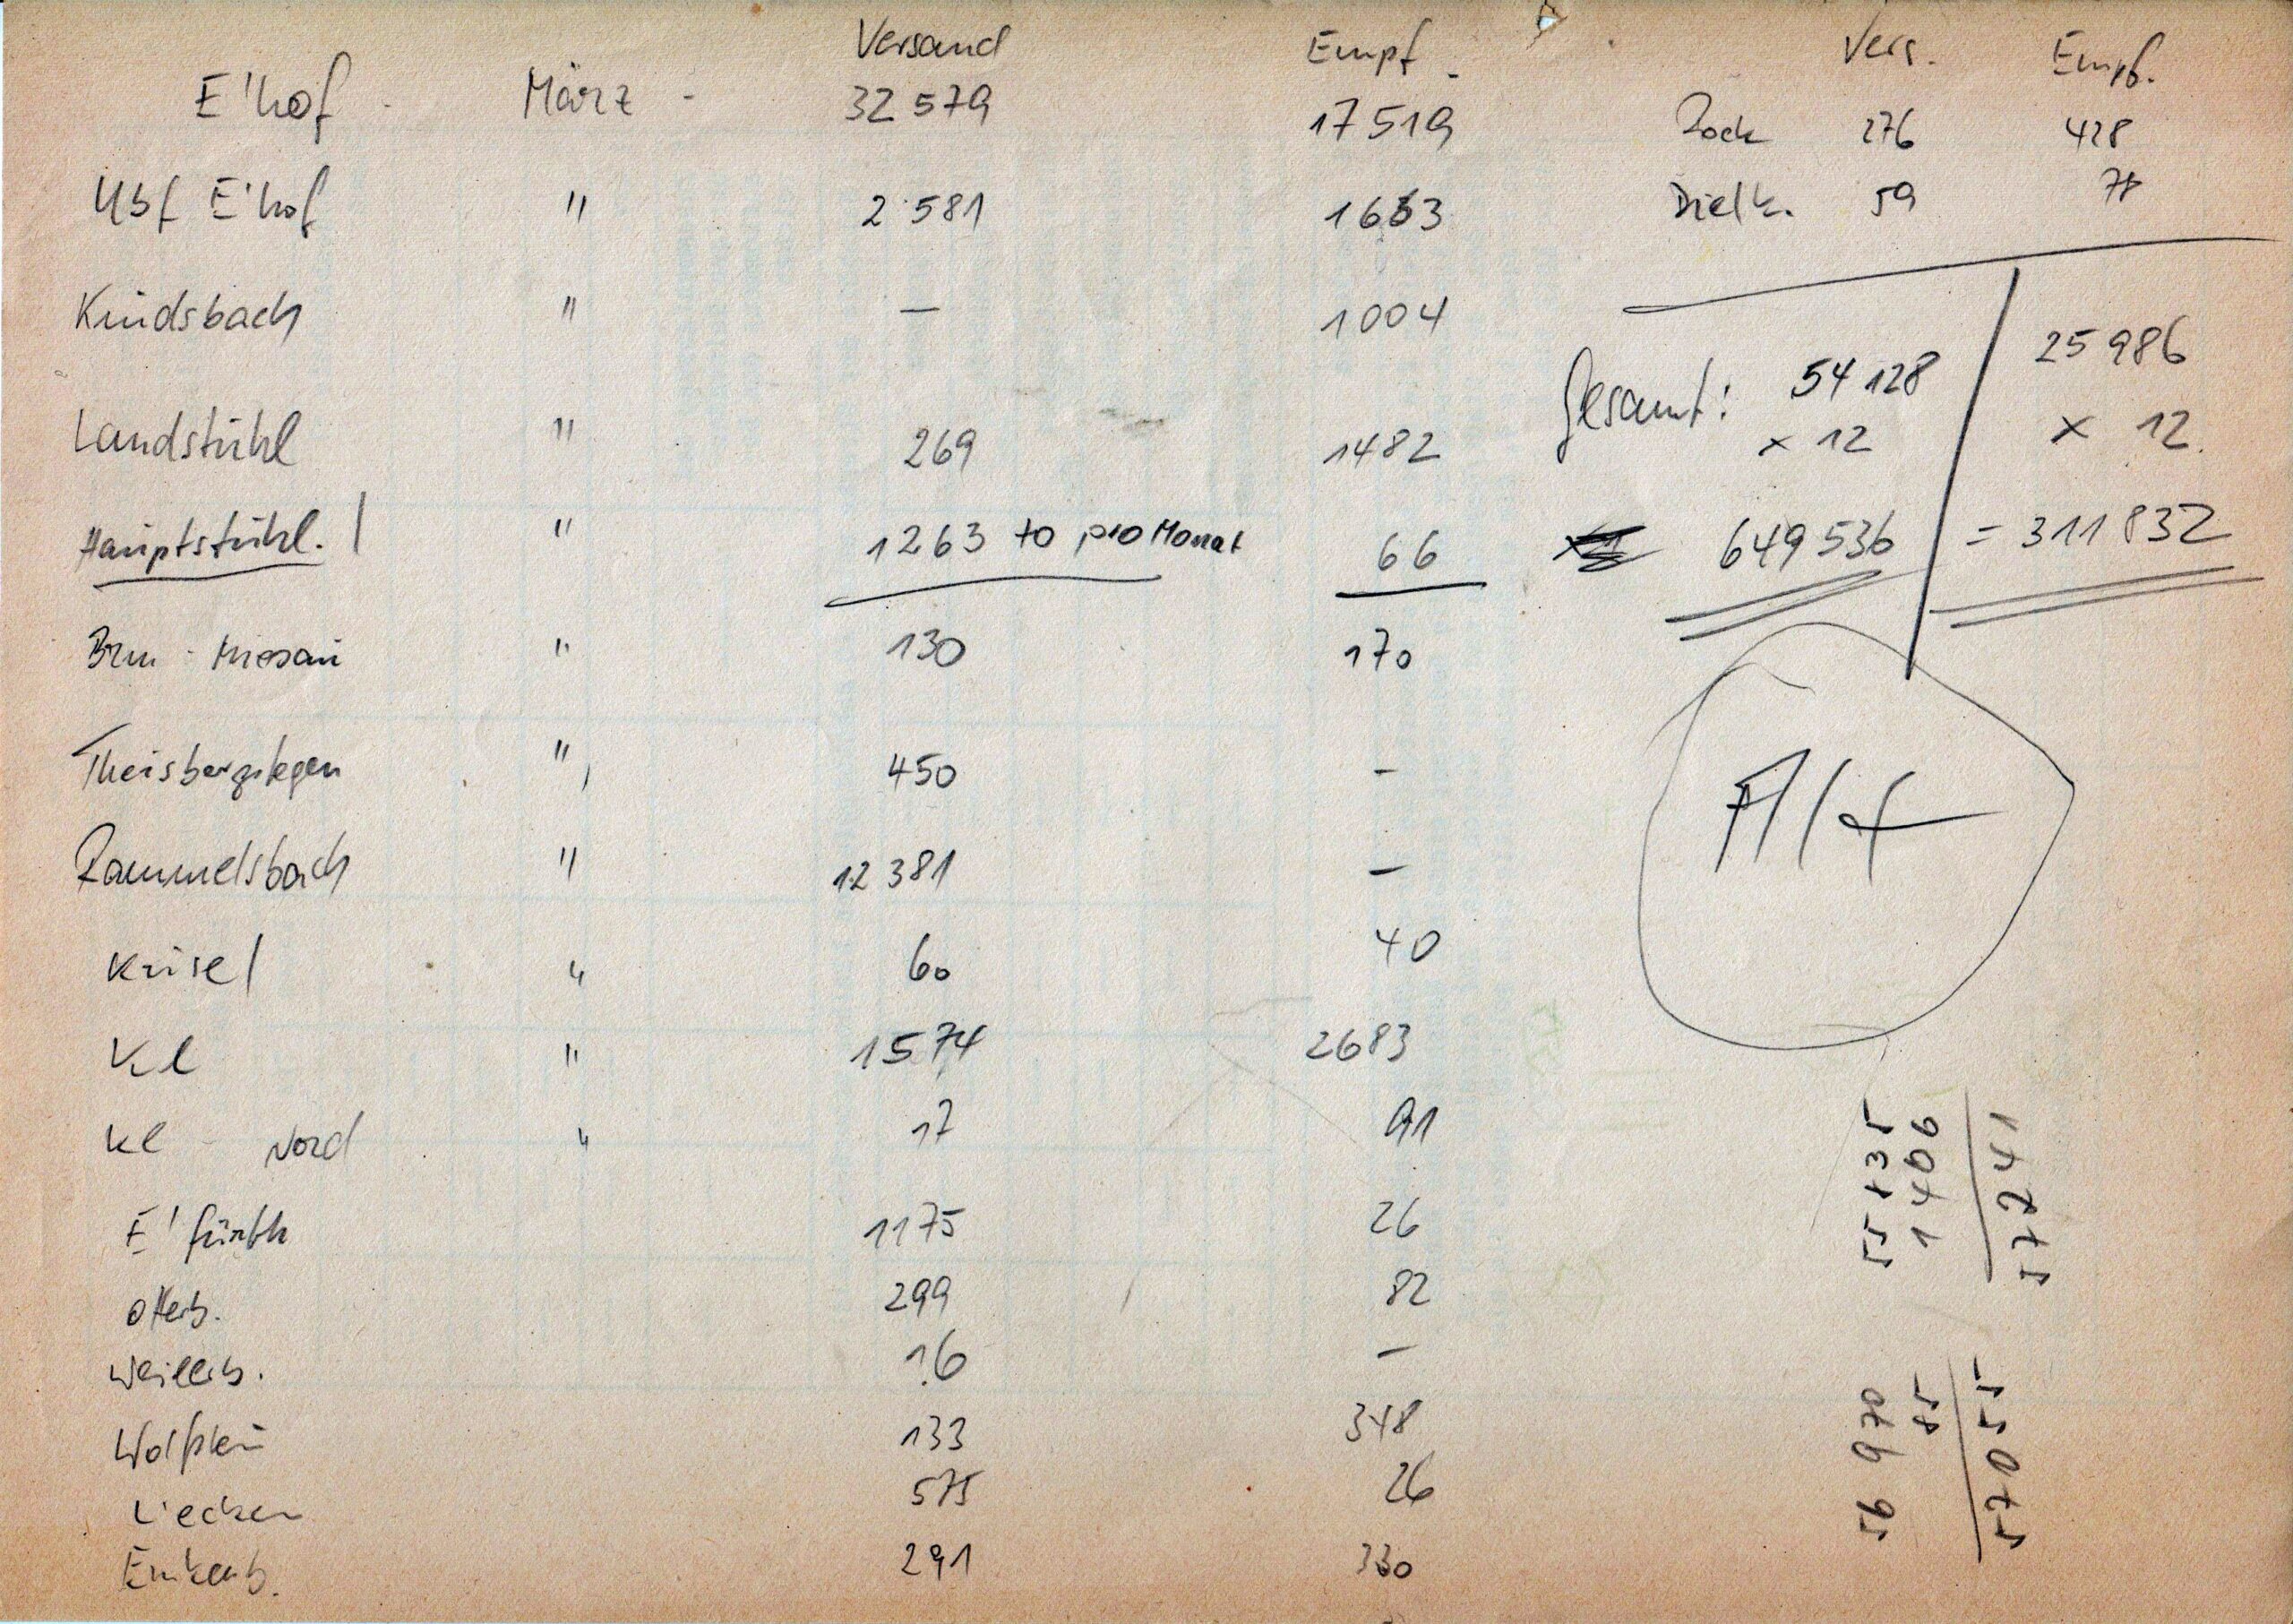 Versand Empf. Vers. Empf.
E'hof - März - 32 579 17 519 Rock 276 428
Ubf E'hof " 2 581 1663 Dielk. 59 78
Kindsbach " — 1004
Landstuhl " 269 1482
Hauptstuhl. ! " 1263 to pro Monat 66
Brm - Miesau " 130 170
Theisbergstegen " 450 -
Rammelsbach " 12 381 —
Kusel " 60 40
Kl " 1574 2683
Kl - Nord " 17 91
E'fürth 1175 26
Otterb. 299 82
Weilerb. 16 —
Wolfstein 133 348
L'ecken 575 26
Enkenb. 291 330
Gesamt: 54 128 25 986
x 12 x 12
649 536 = 311 832
55 835
1 406
57 241
56 970
85
57 055